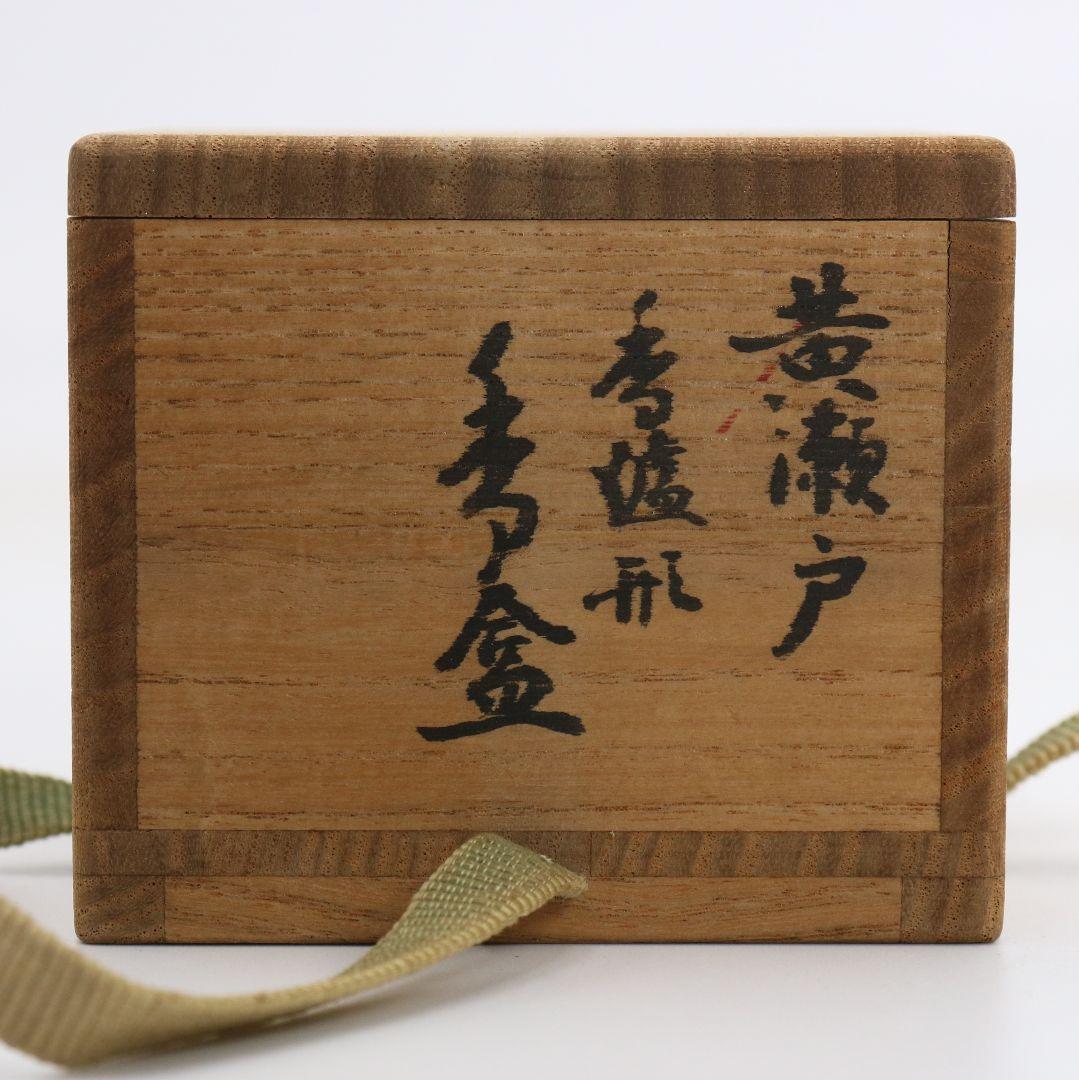 黄瀬戸
香爐形
香盒